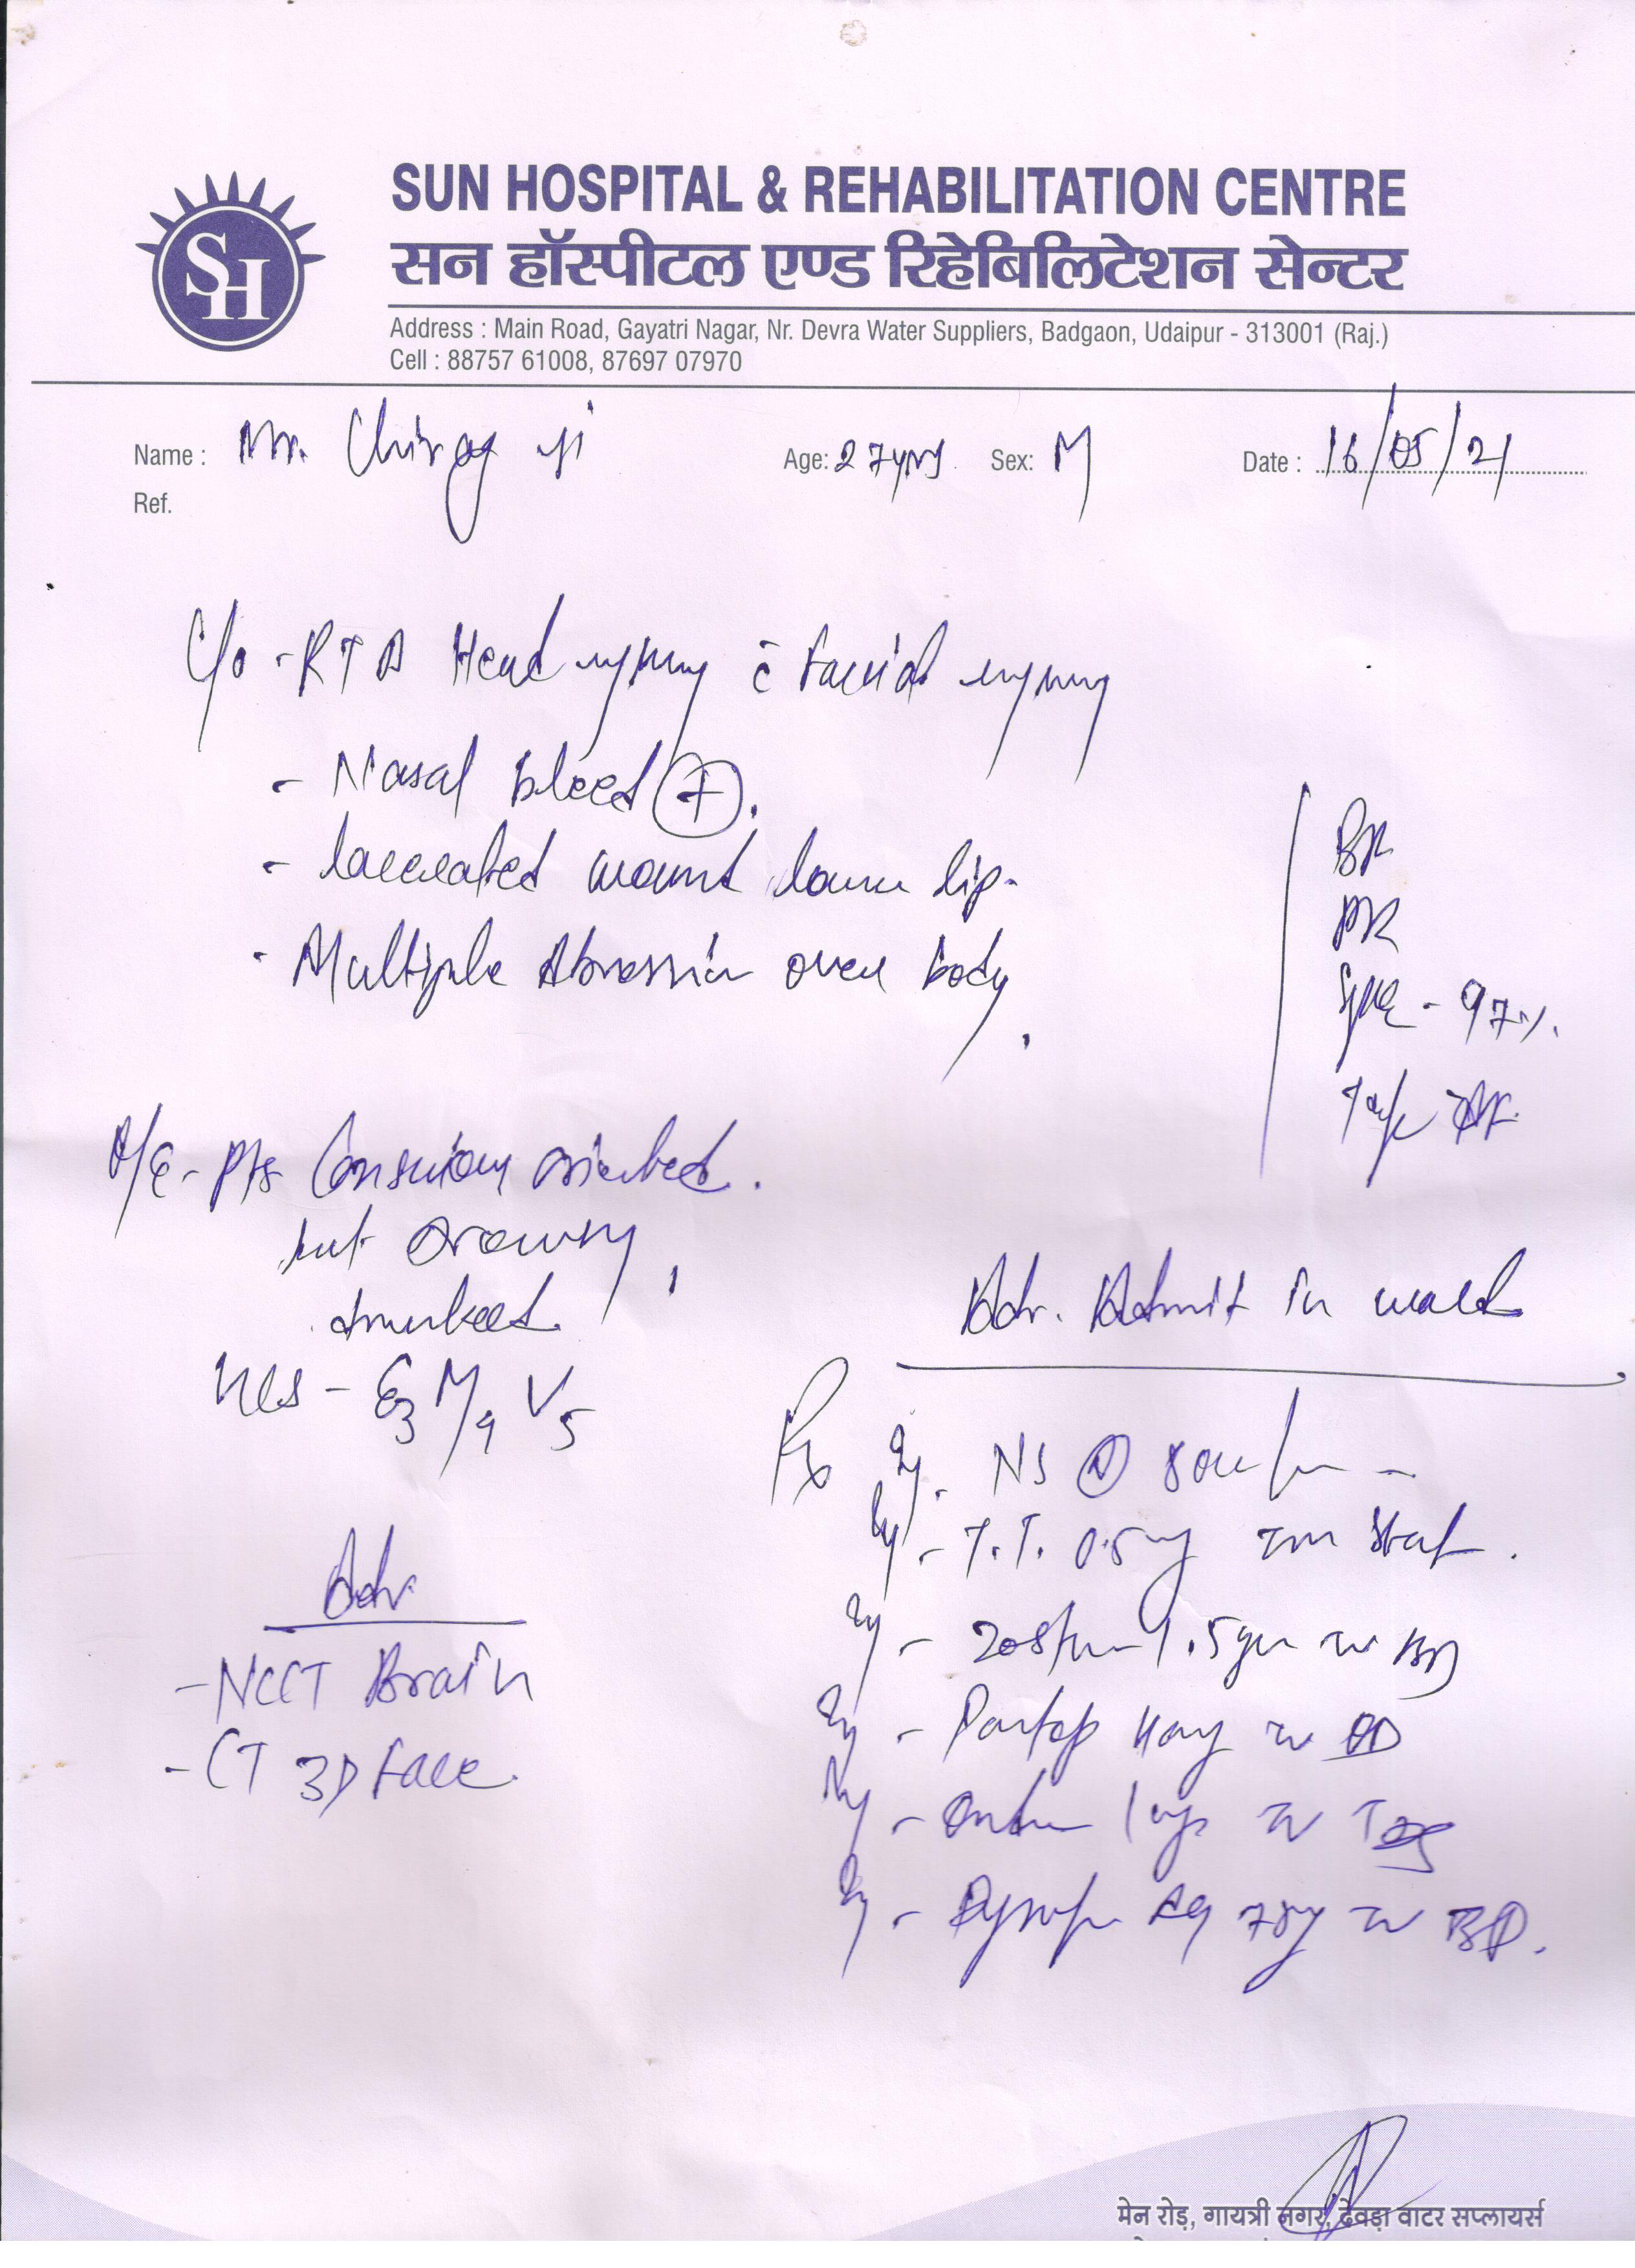 SH
SUN HOSPITAL & REHABILITATION CENTRE
सन हॉस्पीटल एण्ड रिहेबिलिटेशन सेन्टर
Address : Main Road, Gayatri Nagar, Nr. Devra Water Suppliers, Badgaon, Udaipur - 313001 (Raj.)
Cell : 88757 61008, 87697 07970
Name : Mr. Chirag ji Age: 27yrs Sex: M Date : 16/05/21
Ref.
C/o - RTA Head injury c̄ facial injury
- Nasal bleed (+).
- Lacerated wound lower lip.
- Multiple Abrassion over body.
BP
PR
SpO2 - 97%.
Temp
O/E - Pts Conscious oriented.
but drowsy,
Adv. Admit in ward
GCS - E3 M V5
Rx Inj. NS @
Inj - T.T. 0.5 IM Stat.
Inj - 1.5gm IV BD
Inj - Pantop 40mg IV OD
Inj - IV
Inj - AQ 75mg IV BD.
Adv
- NCCT Brain
- CT 3D Face.
मेन रोड़, गायत्री नगर, देवड़ा वाटर सप्लायर्स